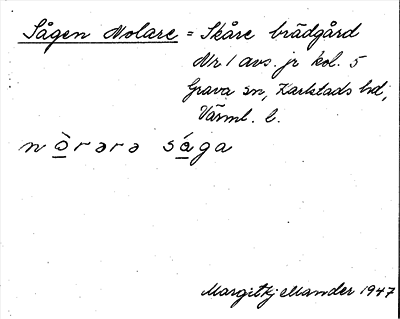 Sågen Nolare = Skåre brädgård
Nr 1 avs. jr kol. 5
Grava sn, Karlstads hd,
Värml. l.
nò̱rərə sá̱ga
Margit Kjellander 1947